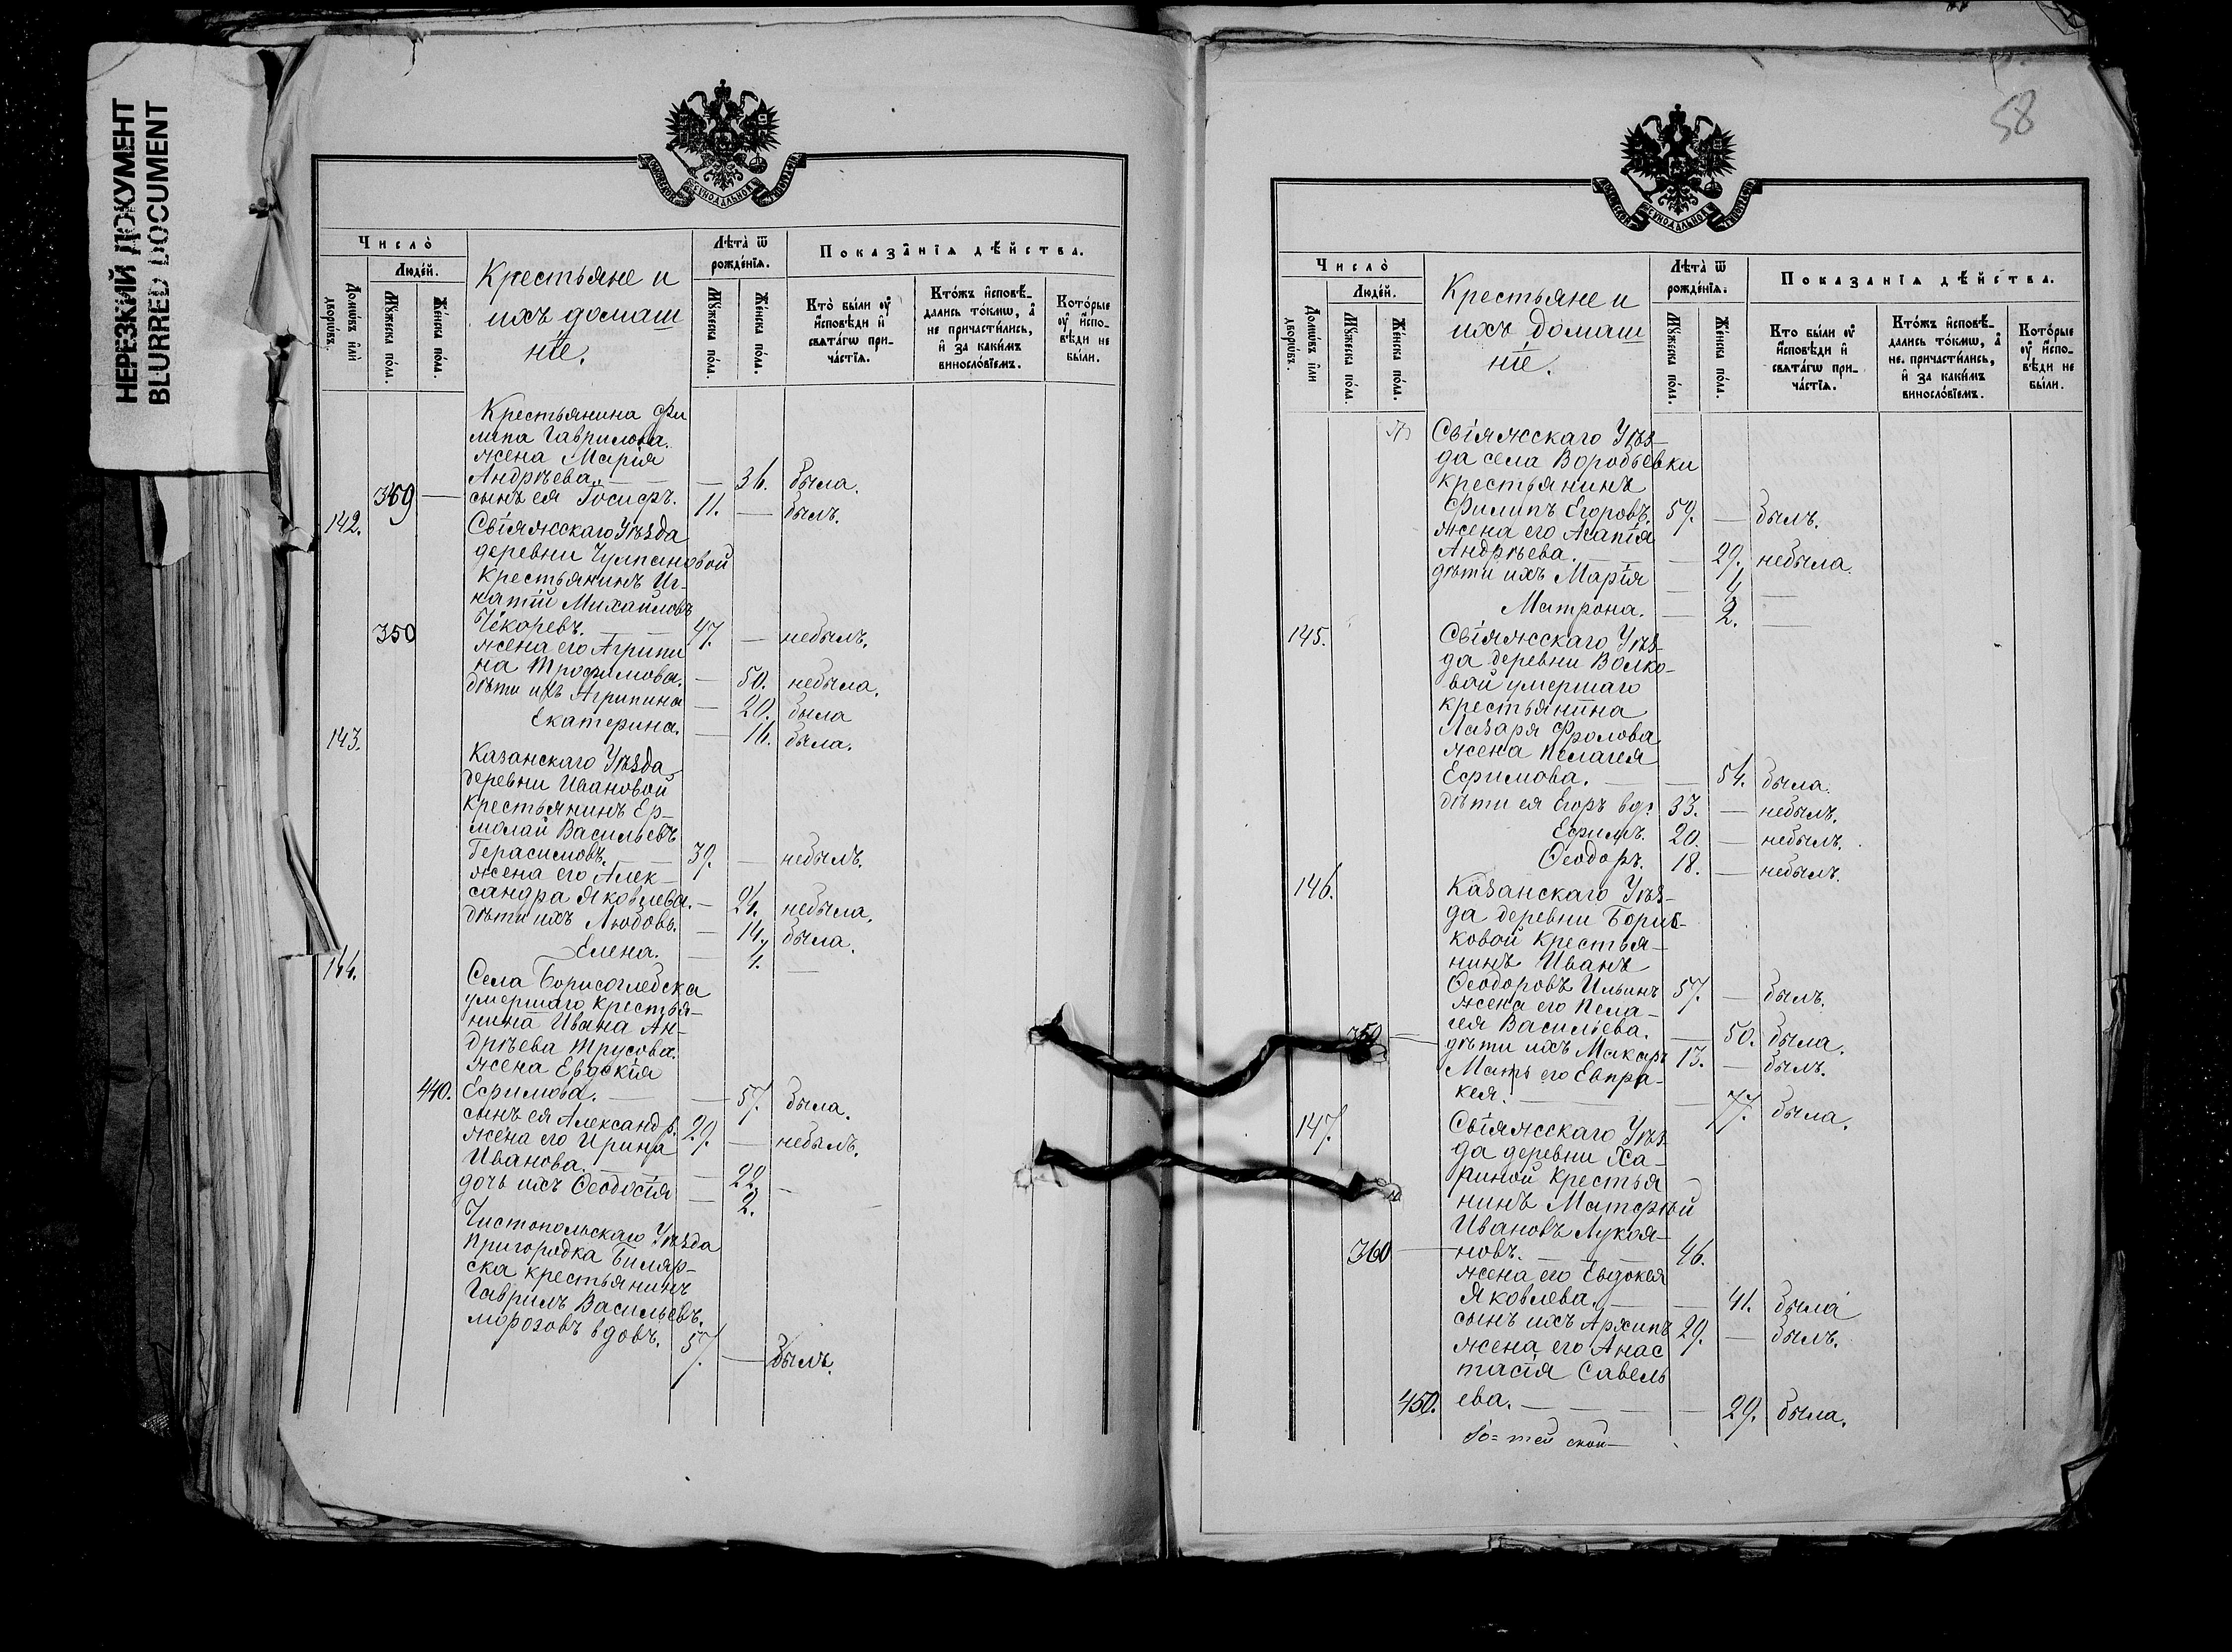 НЕРЕЗКИЙ ДОКУМЕНТ
BLURRED DOCUMENT
МОСКОВСКОЙ СѴНОДАЛЬНОЙ ТИПОГРАФІИ
Число̀
Люде́й.
Домѡ́въ и҆лѝ дворѡ́въ.
Мꙋ́жеска по́ла.
Же́нска по́ла.
Крестьяне и
ихъ домаш
ніе.
Лѣта̀ ѿ
рожде́нїѧ.
Мꙋ́жеска по́ла.
Же́нска по́ла.
Показа̑нїѧ дѣ́йства.
Кто̀ бы́ли ᲂу҆
и҆́сповѣди и҆
свѧта́гѡ при-
ча́стїѧ.
Кто́жъ и҆сповѣ́-
дались то́кмѡ, а҆
не причасти́лись,
и҆ за каки́мъ
виносло́вїемъ.
Кото́рые
ᲂу҆ и҆́спо-
вѣди не
бы́ли.
Крестьянина Фи
липа Гаврилова
жена Марія
Андрѣева. — — 36. была.
349 — сынъ ея Іосифъ. 11. — былъ.
142. Свіяжскаго Уѣзда
деревни Чулпановой
Крестьянинъ Иг-
натій Михайловъ
350 Чекаревъ. — 47. — небылъ.
жена его Агрипи
на Трофимова. — 50. небыла.
дѣти ихъ Агрипина — 20. была
Екатерина. — 16. была.
143. Казанскаго Уѣзда
деревни Ивановой
крестьянинъ Ер-
молай Васильевъ
Герасимовъ. — 39. — небылъ.
жена его Алек-
сандра Яковлева. — 24. небыла.
дѣти ихъ Любовь. — 14. была.
Елена. — 4. —
144. Села Борисоглебска
умершаго крестья-
нина Ивана Ан-
дрѣева Трусова.
жена Евдокія
440. Ефимова. — — 57. была.
сынъ ея Александръ. 29. — небылъ.
жена его Ирина
Иванова. — — 22. —
дочь ихъ Ѳеодосія — 2.
Чистопольскаго Уѣзда
Пригородка Биляр-
ска крестьянинъ
Гаврилъ Васильевъ.
морозовъ вдовъ. 57. — былъ.
58
МОСКОВСКОЙ СѴНОДАЛЬНОЙ ТИПОГРАФІИ
Число̀
Люде́й.
Домѡ́въ и҆лѝ дворѡ́въ.
Мꙋ́жеска по́ла.
Же́нска по́ла.
Крестьяне и
ихъ домаш
ніе.
Лѣта̀ ѿ
рожде́нїѧ.
Мꙋ́жеска по́ла.
Же́нска по́ла.
Показа̑нїѧ дѣ́йства.
Кто̀ бы́ли ᲂу҆
и҆́сповѣди и҆
свѧта́гѡ при-
ча́стїѧ.
Кто́жъ и҆сповѣ́-
дались то́кмѡ, а҆
не причасти́лись,
и҆ за каки́мъ
виносло́вїемъ.
Кото́рые
ᲂу҆ и҆́спо-
вѣди не
бы́ли.
Свіяжскаго Уѣз-
да села Воробьевки
крестьянинъ
Филипъ Егоровъ. 59. — былъ.
жена его Агапія
Андрѣева. — — 29. небыла.
дѣти ихъ Марія — 4 —
Матрона. — 2. —
145. Свіяжскаго Уѣз-
да деревни Волко-
вой умершаго
крестьянина
Лазаря Фролова
жена Пелагея
Ефимова. — — 54. была.
дѣти ея Егоръ вд. 33. — небылъ.
Ефимъ. 20. — небылъ.
Ѳеодоръ. 18. — небылъ.
146. Казанскаго Уѣз-
да деревни Борис-
ковой крестья-
нинъ Иванъ
Ѳеодоровъ Ильинъ 57. — былъ.
жена его Пела-
гея Васильева. — 50. была.
дѣти ихъ Макаръ 13. — былъ.
Мать его Евпра-
кея. — — 77. была.
147. Свіяжскаго Уѣз-
да деревни Ха-
риной крестья
нинъ Матфѣй
Ивановъ Лукоя-
360 — новъ. — 46.
жена его Евдокея
Яковлева. — — 41. была
сынъ ихъ Архипъ 29. — былъ.
жена его Анас
тасія Савель
450. ева. — — 29. была.